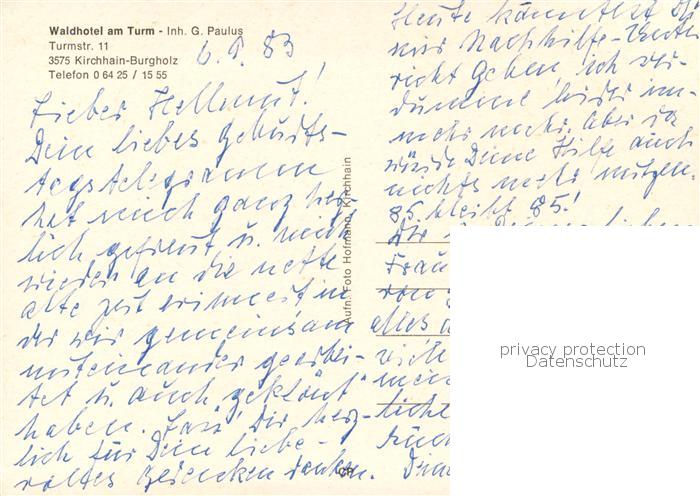 Waldhotel am Turm - Inh. G. Paulus
Turmstr. 11
3575 Kirchhain-Burgholz
Telefon 0 64 25 / 15 55
83
Lieber Hellmut!
Dein liebes Geburts-
tagstelegramm
hat mich ganz herz-
lich gefreut u. mich
wieder an die nette
alte Zeit erinnert in
der wir gemeinsam
miteinander gearbei-
tet u. auch geklönt
haben. Lass' Dir herz-
lich für Dein liebe-
volles Gedenken danken.
Aufn. Foto Hofmann, Kirchhain
Heute könntest Du
mir Nachhilfe-Unter-
richt geben, ich ver-
dumme leider im-
mehr mehr. Aber da
würde Deine Hilfe auch
nichts mehr nützen.
85 bleibt 85!
Dir u. Deiner lieben
Frau
alles
viele
mein
liche
Deine
privacy protection
Datenschutz